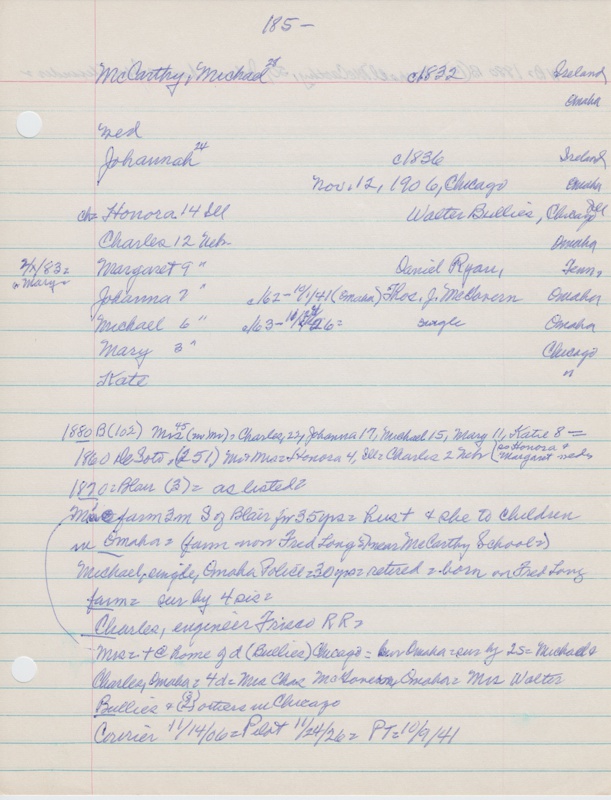 185-
McCarthy, Michael 28 c1832 Ireland
Omaha
wed
Johannah 24 c1836 Ireland
Nov. 12, 1906, Chicago Omaha
ch= Honora 14 Ill Walter Bullies, Chicago Ill
Charles 12 Neb. Omaha
Margaret 9 " Daniel Ryan, Tenn,
Johanna 7 " c/62- /41 (Omaha) Thos. J. McGovern Omaha
Michael 6 " c/63- 26= single Omaha
Mary 3 " Chicago
Kate "
1880 B(102) Mrs 45 (no Mr) = Charles, 22, Johanna 17, Michael 15, Mary 11, Katie 8 =
1860 DeSoto, (251) Mr & Mrs = Honora 4, Ill = Charles 2 Neb (so Honora &
Margaret weds
1870 = Blair (3) = as listed =
farm 3m S of Blair for 35 yrs = hust & she to children
in Omaha = (farm now Fred Long = near McCarthy School =)
Michael, single, Omaha Police = 30 yrs = retired = born on Fred Long
farm = sur by 4 sis =
Charles, engineer Frisco RR =
Mrs = + @ home of d (Bullies) Chicago = bur Omaha = sur by 2s = Michael &
Charles, Omaha = 4d = Mrs Thos McGovern, Omaha = Mrs Walter
Bullies & (2) others in Chicago
Courier 11/14/06 = Pilot 11/24/26 = PT = 10/9/41